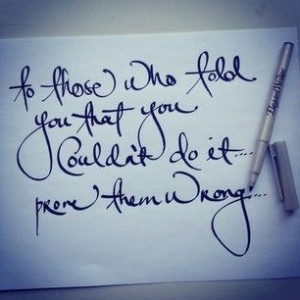 to those who told
you that you
Couldn't do it....
prove them wrong!...